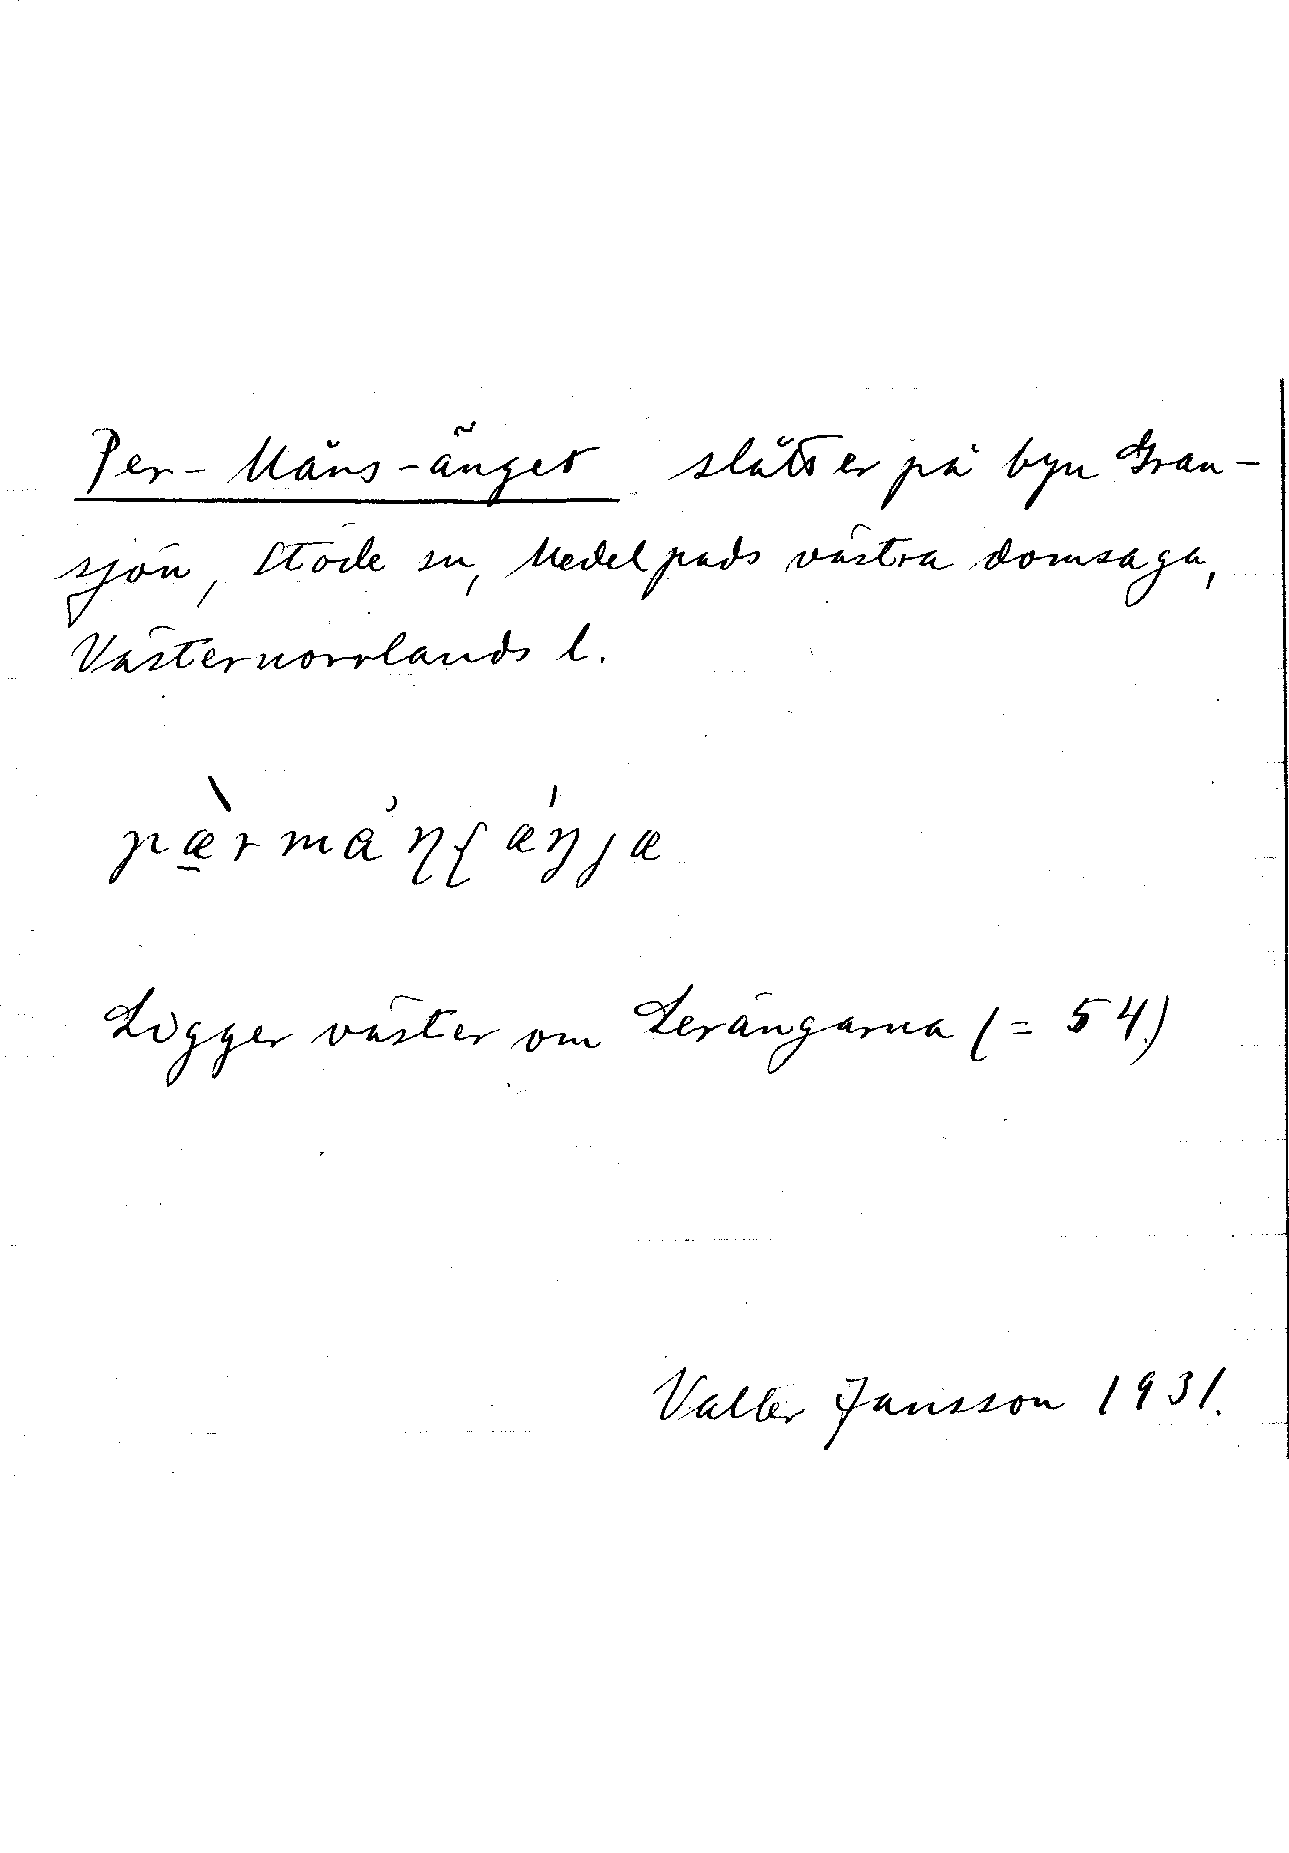 Per-Måns-änget slåtter på byn Gran-
sjön, Stöde sn, Medelpads västra domsaga,
Västernorrlands l.
Ligger väster om Lerängarna (= 54.)
Valter Jansson 1931.